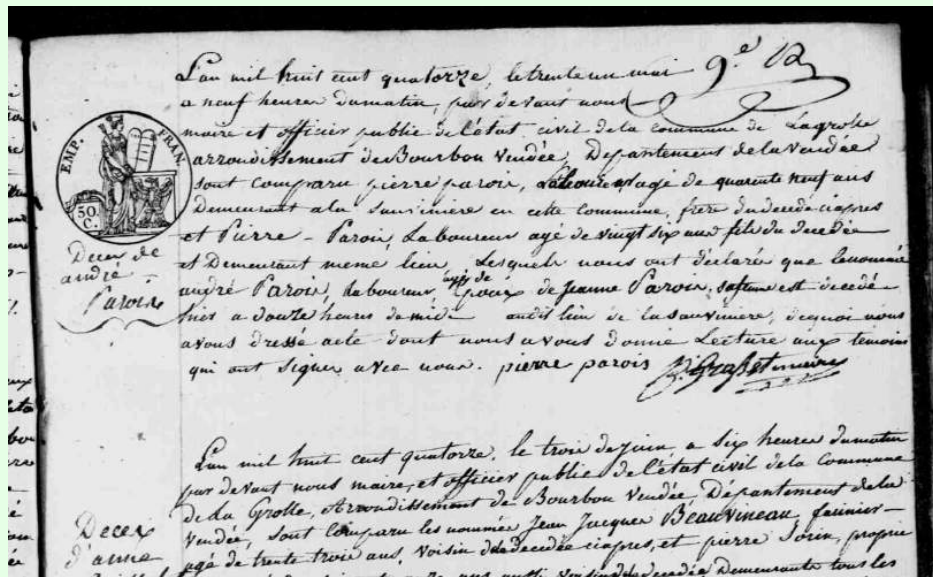 L'an mil huit cent quatorze, le trente un mai 9.e
a neuf heures du matin, par devant nous
maire et officier public de l'état civil de la commune de Lagrolle
arrondissement de Bourbon Vendée, Département de la Vendée
sont comparu pierre parois, Laboureur agé de quarente neuf ans
Demeurant a la Sauviniere en cette commune, frere du decede ciapres
et Pierre - Parois, Laboureur agé de vingt six ans fils du decedée
et Demeurant meme lieu, Lesquels nous ont déclaré que lenommé
andré Parois, Laboureur, époux de Jeanne Parois, safame est decedé
hier a douze heures de midi audit lieu de la sauviniere, dequoi nous
avons dressé acte dont nous avons donné Lecture aux temoins
qui ont signer avec nous. pierre parois maire
EMP. FRAN.
50.
C.
Decex de
andré
Parois
L'an mil huit cent quatorze, le trois de juin, a six heures du matin
par devant nous maire, et officier public de l'état civil de la Commune
de La Grolle, Arrondissement de Bourbon Vendée, Département de la
Vendée, sont Comparu les nommés Jean Jacques Beauvineau, farinier -
agé de trente trois ans, voisin de la decedée ciapres, et pierre Sorin, propri
aussi voisin de la decedée Demeurants tous les
Decex
d'anne